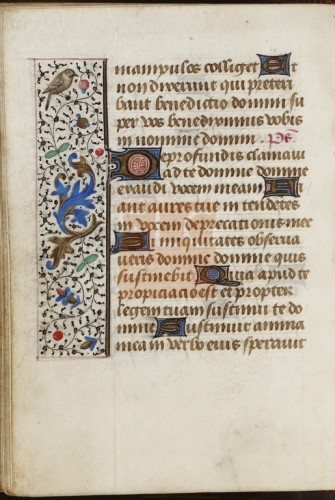 manipulos colliget Et
non dixerunt qui preteri
bant benedictio domini su
per vos benediximus vobis
in nomine domini. ps
De profundis clamaui
ad te domine domine
exaudi vocem meam Fi
ant aures tue in tendetes
in vocem deprecationis mee
Si iniquitates obserua
ueris domine domine quis
sustinebit Quia apud te
propiciacio est et propter
legem tuam sustinui te do
mine Sustinuit anima
mea in verbo eius sperauit